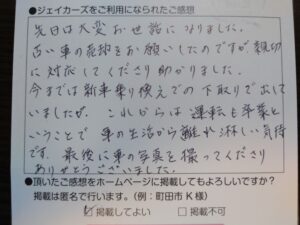 ●ジェイカーズをご利用になられたご感想
先日は大変お世話になりました。
古い車の売却をお願いしたのですが親切
に対応してくださり助かりました。
今までは新車乗り換えでの下取りで出して
いましたが、これからは運転も卒業と
いうことで車の生活から離れ淋しい気持
です。最後に車の写真を撮ってくださり
ありがとうございました。
●頂いたご感想をホームページに掲載してもよろしいですか？
掲載は匿名で行います。（例：町田市K様）
☑掲載してよい　□掲載不可